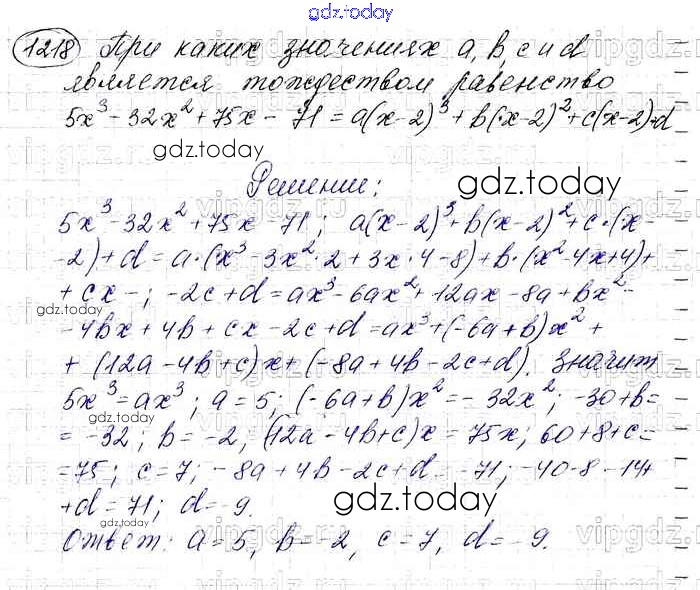 gdz.today
1218 При каких значениях a, b, c и d
является тождеством равенство
5x³ - 32x² + 75x - 71 = a(x-2)³ + b(x-2)² + c(x-2) + d
gdz.today
Решение:
gdz.today
5x³ - 32x² + 75x - 71; a(x-2)³ + b(x-2)² + c·(x-
-2) + d = a·(x³ - 3x²·2 + 3x·4 - 8) + b·(x² - 4x + 4) +
+ cx -; -2c + d = ax³ - 6ax² + 12ax - 8a + bx² -
gdz.today
- 4bx + 4b + cx - 2c + d = ax³ + (-6a + b)x² +
+ (12a - 4b + c)x + (-8a + 4b - 2c + d). Значит
5x³ = ax³; a = 5; (-6a + b)x² = -32x²; -30 + b =
gdz.today
= -32; b = -2, (12a - 4b + c)x = 75x; 60 + 8 + c =
= 75; c = 7; -8a + 4b - 2c + d = -71; -40 - 8 - 14 +
+ d = 71; d = -9.
gdz.today
Ответ: a = 5, b = -2, c = 7, d = -9.